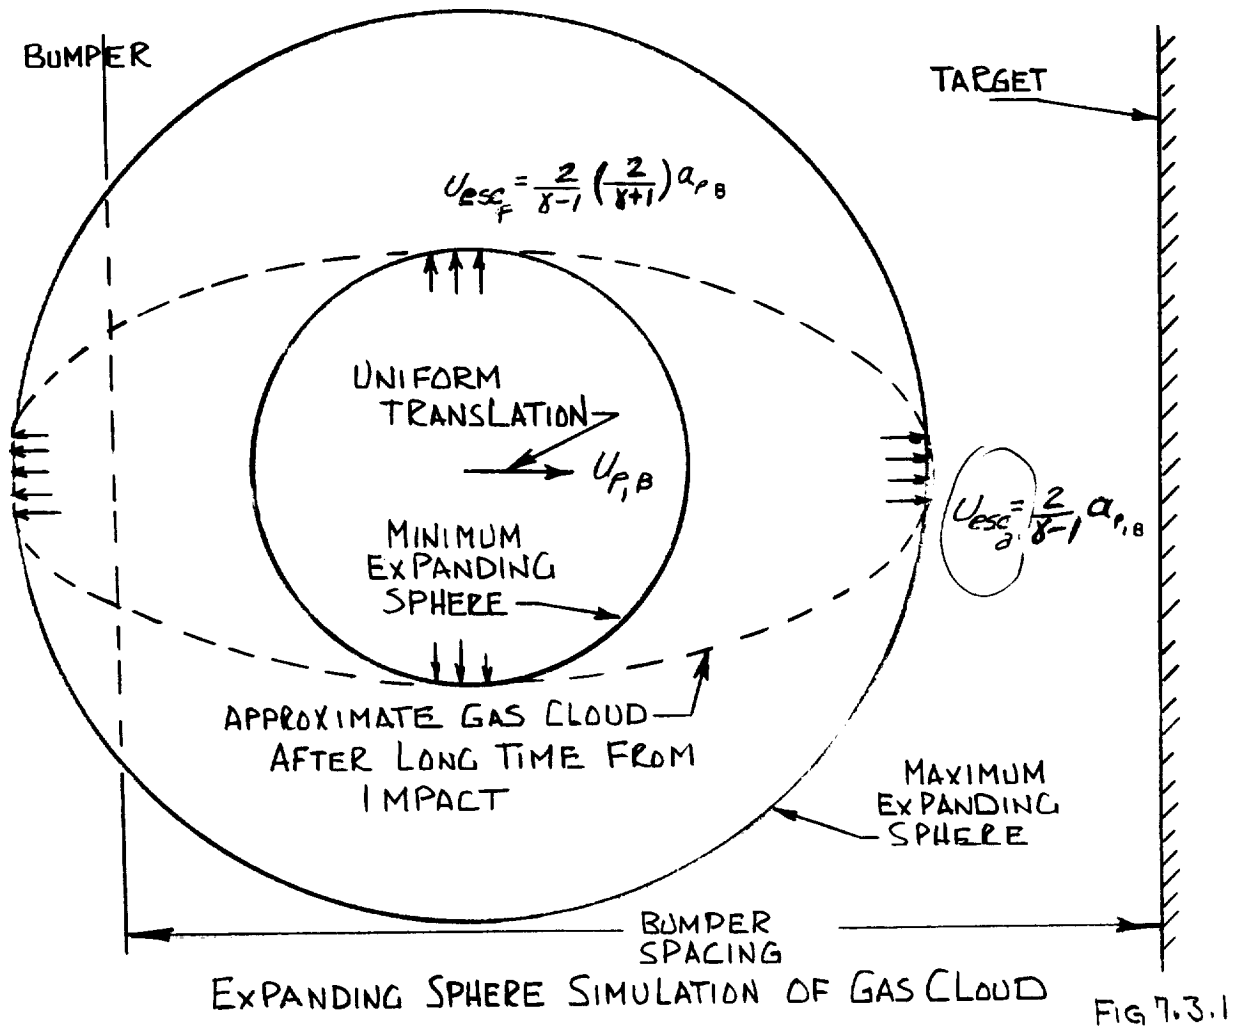 BUMPER
TARGET
U_esc_F = 2/(γ-1) (2/(γ+1)) a_P,B
UNIFORM
TRANSLATION
U_P,B
U_esc_a = 2/(γ-1) a_P,B
MINIMUM
EXPANDING
SPHERE
APPROXIMATE GAS CLOUD
AFTER LONG TIME FROM
IMPACT
MAXIMUM
EXPANDING
SPHERE
BUMPER
SPACING
EXPANDING SPHERE SIMULATION OF GAS CLOUD
FIG 7.3.1